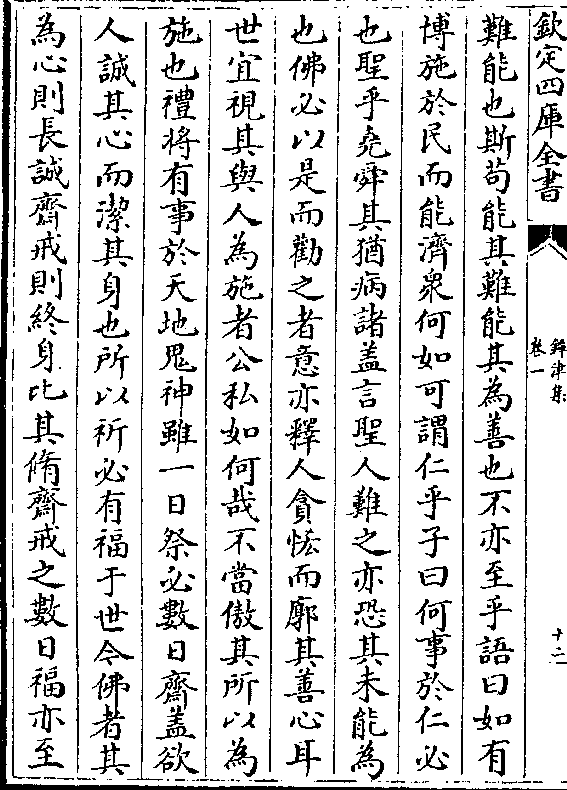 欽定四庫全書
鐔津集
卷一
十二
難能也斯苟能其難能其為善也不亦至乎語曰如有
博施於民而能濟衆何如可謂仁乎子曰何事於仁必
也聖乎堯舜其猶病諸盖言聖人難之亦恐其未能為
也佛必以是而勸之者意亦釋人貪恡而廓其善心耳
世宜視其與人為施者公私如何哉不當傲其所以為
施也禮將有事於天地鬼神雖一日祭必數日齋盖欲
人誠其心而潔其身也所以祈必有福于世今佛者其
為心則長誠齋戒則終身比其脩齋戒之數日福亦至